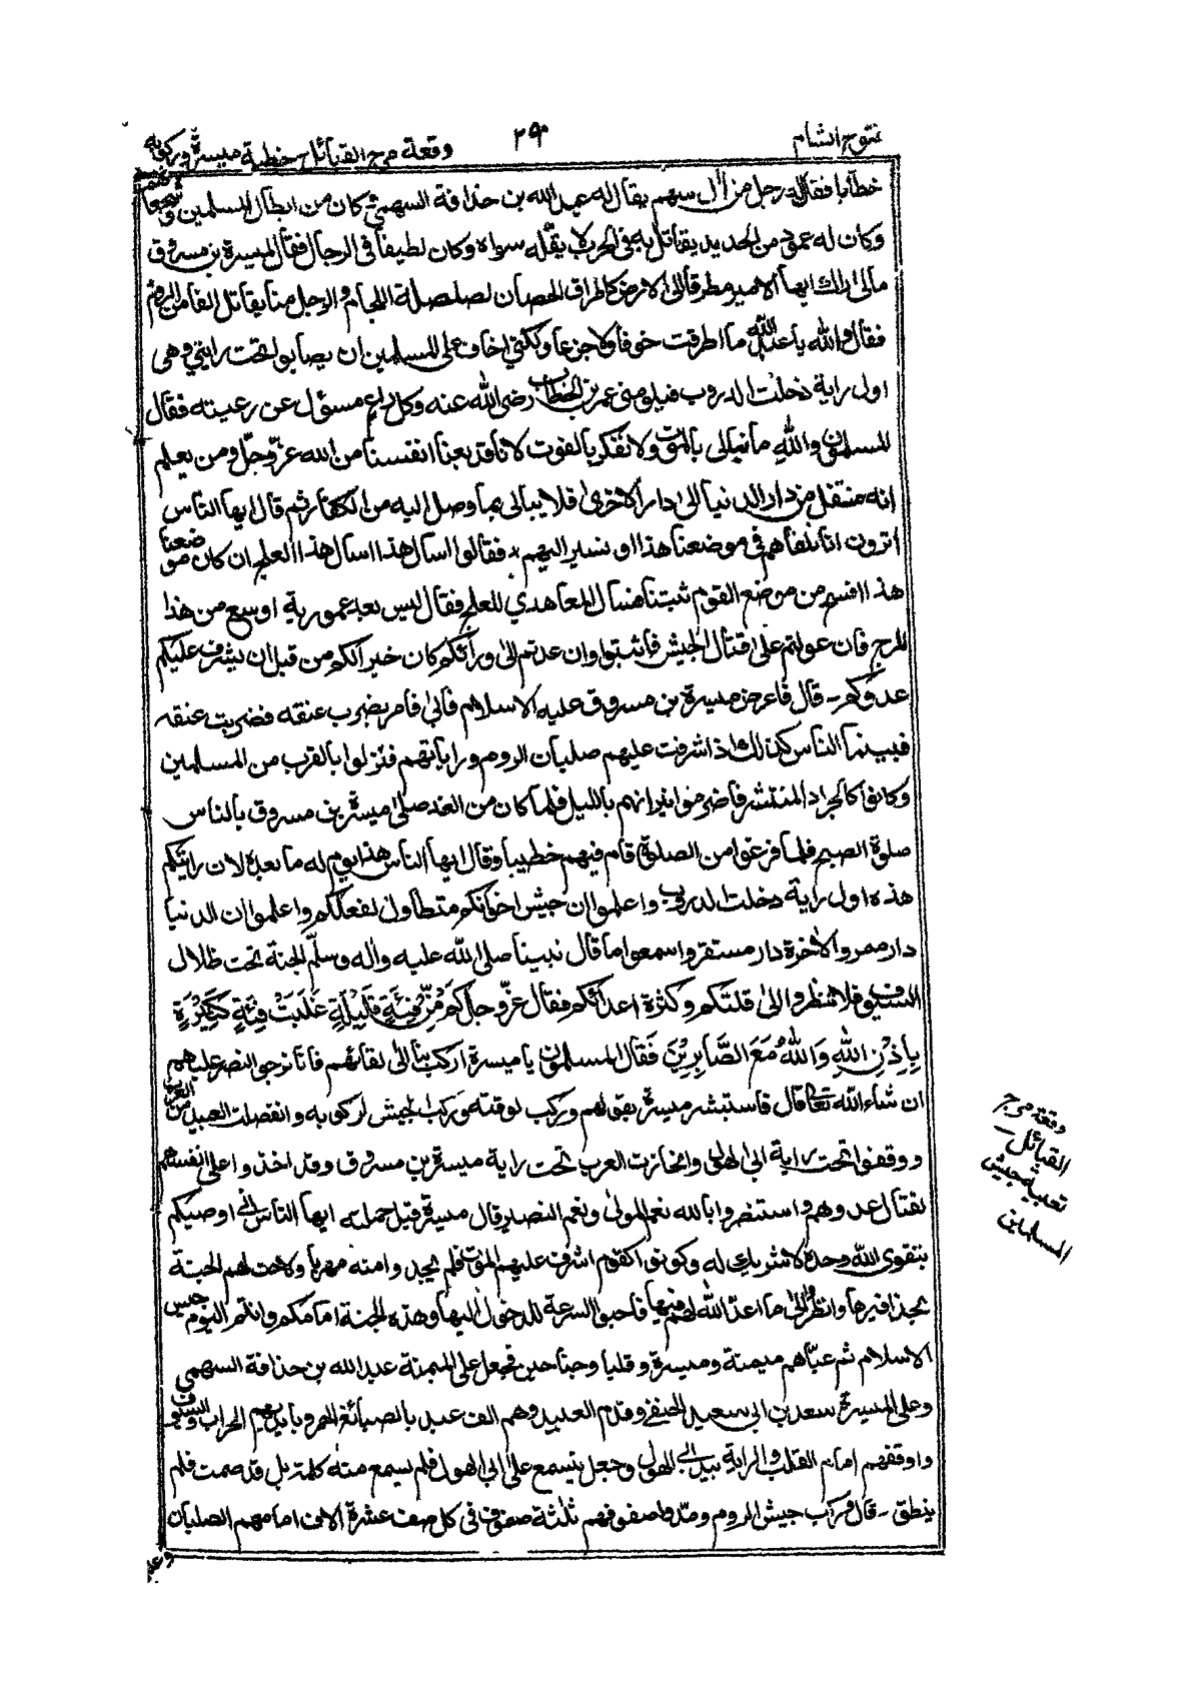 فتوح الشام
٢٩
وقعة مرج القبائل خطبة ميسرة وركوبه
خطابا فقال له رجل من آل سهم يقال له عبد الله بن حذافة السهمي كان من ابطال المسلمين
وكان له عمود من الحديد يقاتل به في الحرب لا يقله سواه وكان لطيفا في الرجال فقال لميسرة بن مسروق
مالى اراك ايها الامير مطرقا الى الارض كاطراق الحصان لصلصلة اللجام والرجل منا يقاتل الفا من الروم
فقال والله يا عبد الله ما اطرقت خوفا ولا جزعا ولكني اخاف على المسلمين ان يصابوا تحت رايتي وهى
اول راية دخلت الدروب فيلومنى عمر بن الخطاب رضى الله عنه وكل راع مسؤل عن رعيته فقال
المسلمون والله ما نبالى بالموت ولا نفكر بالفوت لانا قد بعنا انفسنا من الله عز وجل ومن يعلم
انه منتقل من دار الدنيا الى دار الاخرى فلا يبالى بما وصل اليه من الكفار ثم قال ايها الناس
اترون انا نلقاهم في موضعنا هذا او نسير اليهم فقالوا اسال هذا اسال هذا العلج ان كان موضعنا
هذا افسح من موضع القوم ثبتنا فسال المعاهدي للعلج فقال ليس بعد عمورية اوسع من هذا
المرج فان عولتم على قتال الجيش فاثبتوا وان عدتم الى ورائكم كان خيرا لكم من قبل ان يشرف عليكم
عدوكم - قال فاعرض ميسرة بن مسروق عليه الاسلام فابى فامر بضرب عنقه فضربت عنقه
فبينما الناس كذلك اذ اشرفت عليهم صلبان الروم وراياتهم فنزلوا بالقرب من المسلمين
وكانوا كالجراد المنتشر فاضرموا نيرانهم بالليل فلما كان من الغد صلى ميسرة بن مسروق بالناس
صلوة الصبح فلما فرغوا من الصلوة قام فيهم خطيبا وقال ايها الناس هذا يوم له ما بعده لان رايتكم
هذه اول راية دخلت الدروب واعلموا ان جيش اخوانكم متطاول لفعلكم واعلموا ان الدنيا
دار ممر والاخرة دار مستقر واسمعوا ما قال نبينا صلى الله عليه واله وسلم الجنة تحت ظلال
السيوف فلا تنظروا الى قلتكم وكثرة اعدائكم فقال عز وجل كَمْ مِنْ فِئَةٍ قَلِيلَةٍ غَلَبَتْ فِئَةٍ كَثِيْرَةٍ
بِاِذْنِ اللهِ وَاللهُ مَعَ الصَّابِرِيْنَ فقال المسلمون يا ميسرة اركب بنا الى لقائهم فانا نرجى النصر عليهم
ان شاء الله تعالى قال فاستبشر ميسرة بقولهم وركب لوقته وركب الجيش لركوبه وانفصلت العبيد من العرب
ووقفوا تحت راية ابي الهول وانحازت العرب تحت راية ميسرة بن مسروق وقد اخذوا على انفسهم
لقتال عدوهم واستنصروا بالله نعم المولى ونعم النصير قال ميسرة قبل حملته ايها الناس اني اوصيكم
بتقوى الله وحده لا شريك له وكونوا كقوم اشرف عليهم الموت فلم يجدوا منه مهربا ولاحت لهم الجنة
بحذافيرها وانظروا الى ما اعد الله لهم فيها فاحبوا السرعة للدخول اليها وهذه الجنة امامكم وانتم اليوم جيش
الاسلام ثم عباهم ميمنة وميسرة وقلبا وجناحين فجعل على الميمنة عبد الله بن حذافة السهمي
وعلى الميسرة سعد بن ابى سعيد الحنفي وقدم العبيد وهم الف عبد بالصبائغ الحمر وبايديهم الحراب والسيوف
واوقفهم امام القلب والراية بيد ابي الهول وجعل يتسمع على ابي الهول فلم يسمع منه كلمة بل قد صمت فلم
ينطق - قال وركب جيش الروم ومدوا صفوفهم ثلثة صفوف في كل صف عشرة الاف امامهم الصلبان
وقعة مرج
القبائل -
تعبية جيش
المسلمين